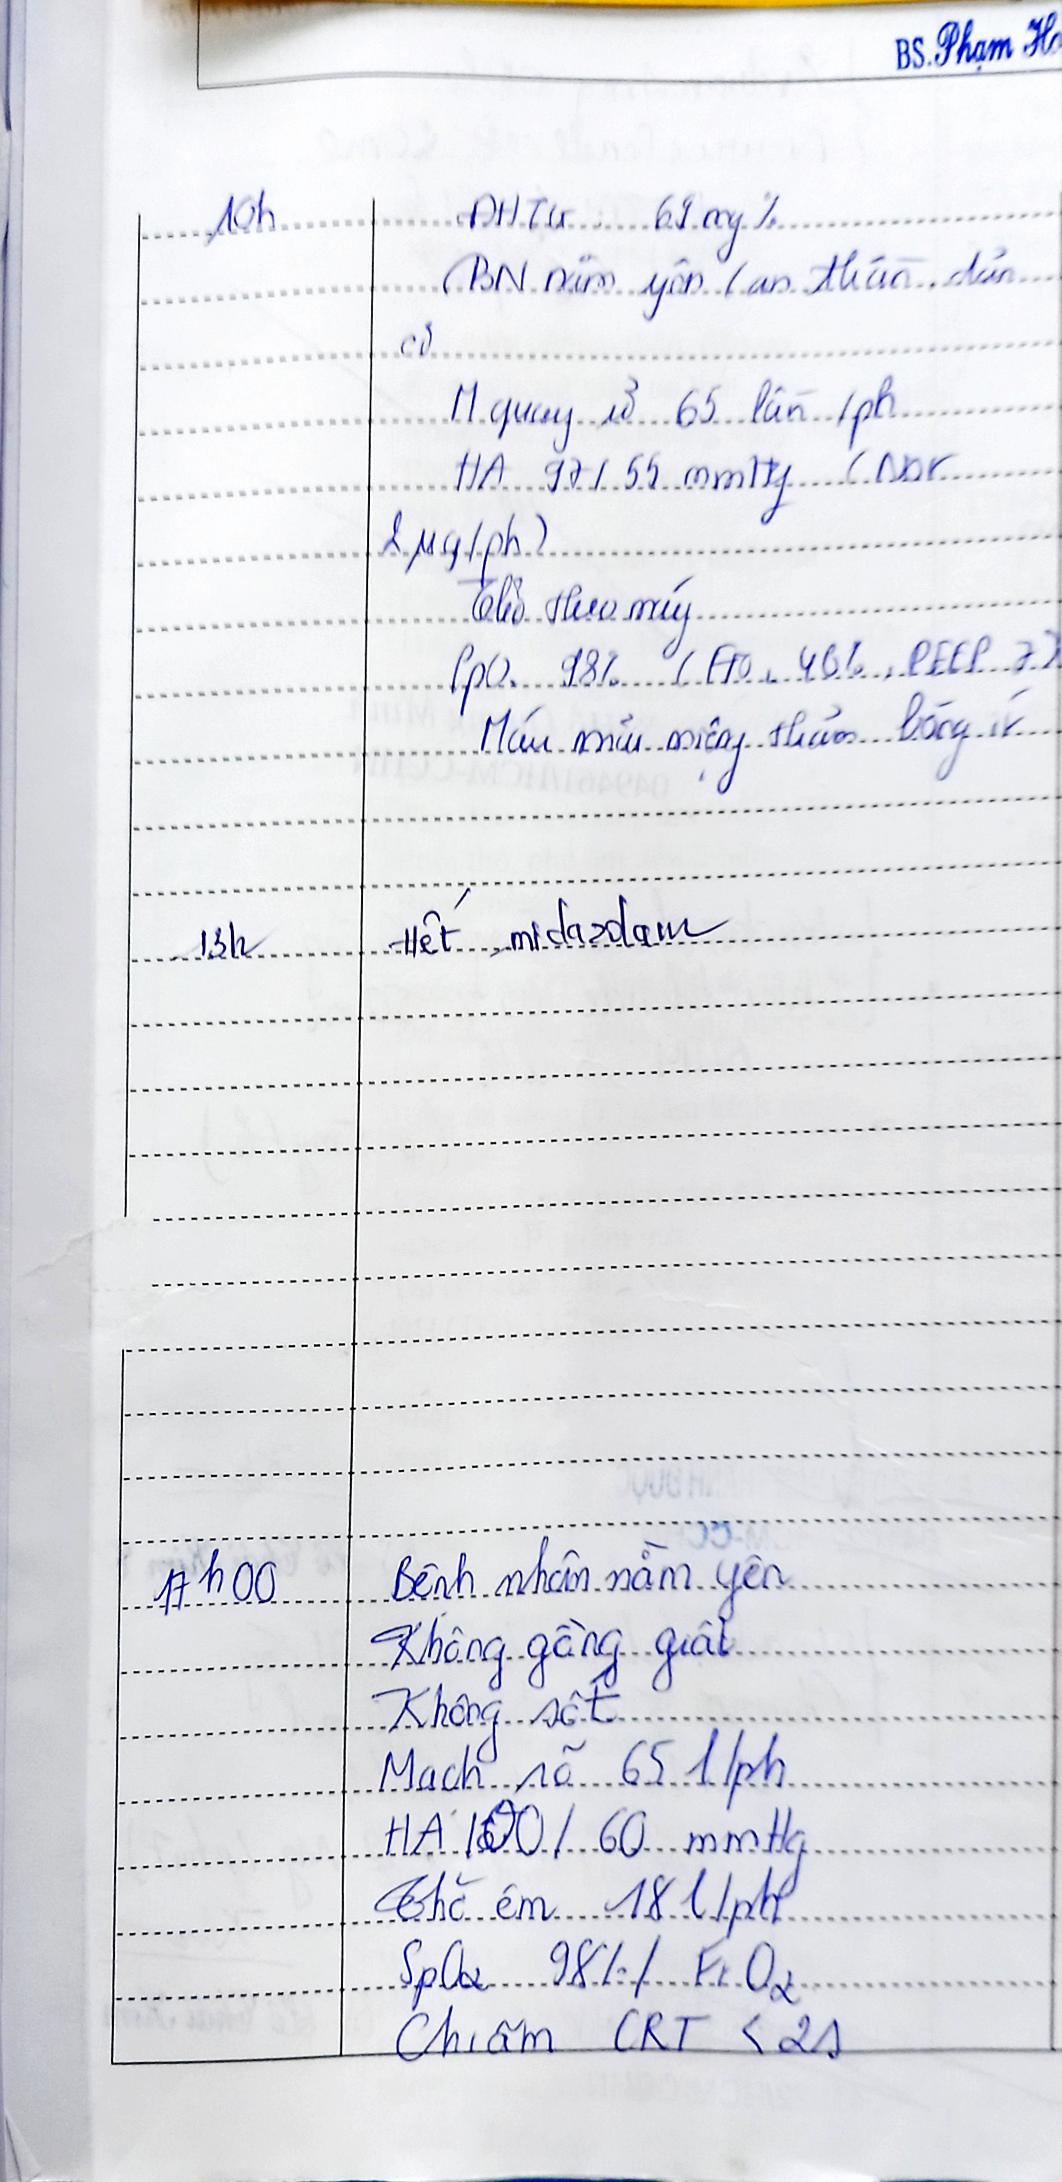 BS. Phạm
10h ĐHTM 69 mg%
BN nằm yên (an thần, dãn
cơ
M quay rõ 65 lần/ph
HA 97/55 mmHg (Nor
2 µg/ph)
Thở theo máy
SpO2 98% (FiO2 40%, PEEP 7)
Máu mũi miệng thấm băng ít
13h Hết midazolam
17h00 Bệnh nhân nằm yên
Không gồng giật
Không sốt
Mạch rõ 65 l/ph
HA 100/60 mmHg
Thở êm 18 l/ph
SpO2 98%/ FiO2
Chi ấm CRT < 2s